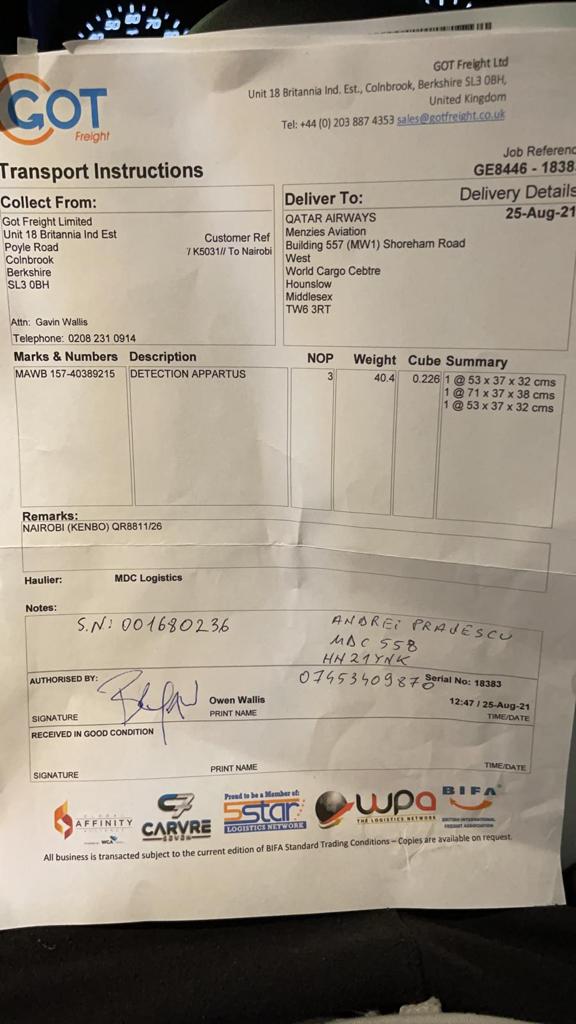 50 60 70
GOT
Freight
GOT Freight Ltd
Unit 18 Britannia Ind. Est., Colnbrook, Berkshire SL3 0BH,
United Kingdom
Tel: +44 (0) 203 887 4353 sales@gotfreight.co.uk
Transport Instructions
Job Referenc
GE8446 - 1838
Collect From:
Got Freight Limited
Unit 18 Britannia Ind Est
Poyle Road
Colnbrook
Berkshire
SL3 0BH
Customer Ref
7 K5031// To Nairobi
Attn: Gavin Wallis
Telephone: 0208 231 0914
Deliver To:
Delivery Details
25-Aug-21
QATAR AIRWAYS
Menzies Aviation
Building 557 (MW1) Shoreham Road
West
World Cargo Cebtre
Hounslow
Middlesex
TW6 3RT
Marks & Numbers Description NOP Weight Cube Summary
MAWB 157-40389215 DETECTION APPARTUS 3 40.4 0.226 1 @ 53 x 37 x 32 cms
1 @ 71 x 37 x 38 cms
1 @ 53 x 37 x 32 cms
Remarks:
NAIROBI (KENBO) QR8811/26
Haulier: MDC Logistics
Notes:
S.N: 001680236
ANDREI PRAJESCU
MDC 558
HN21YNK
07453409870
AUTHORISED BY:
Serial No: 18383
Owen Wallis
12:47 / 25-Aug-21
SIGNATURE PRINT NAME TIME/DATE
RECEIVED IN GOOD CONDITION
SIGNATURE PRINT NAME TIME/DATE
AFFINITY
WCA
CARVRE
Proud to be a Member of:
5star
LOGISTICS NETWORK
wpa
THE LOGISTICS NETWORK
BIFA
BRITISH INTERNATIONAL
FREIGHT ASSOCIATION
All business is transacted subject to the current edition of BIFA Standard Trading Conditions – Copies are available on request.